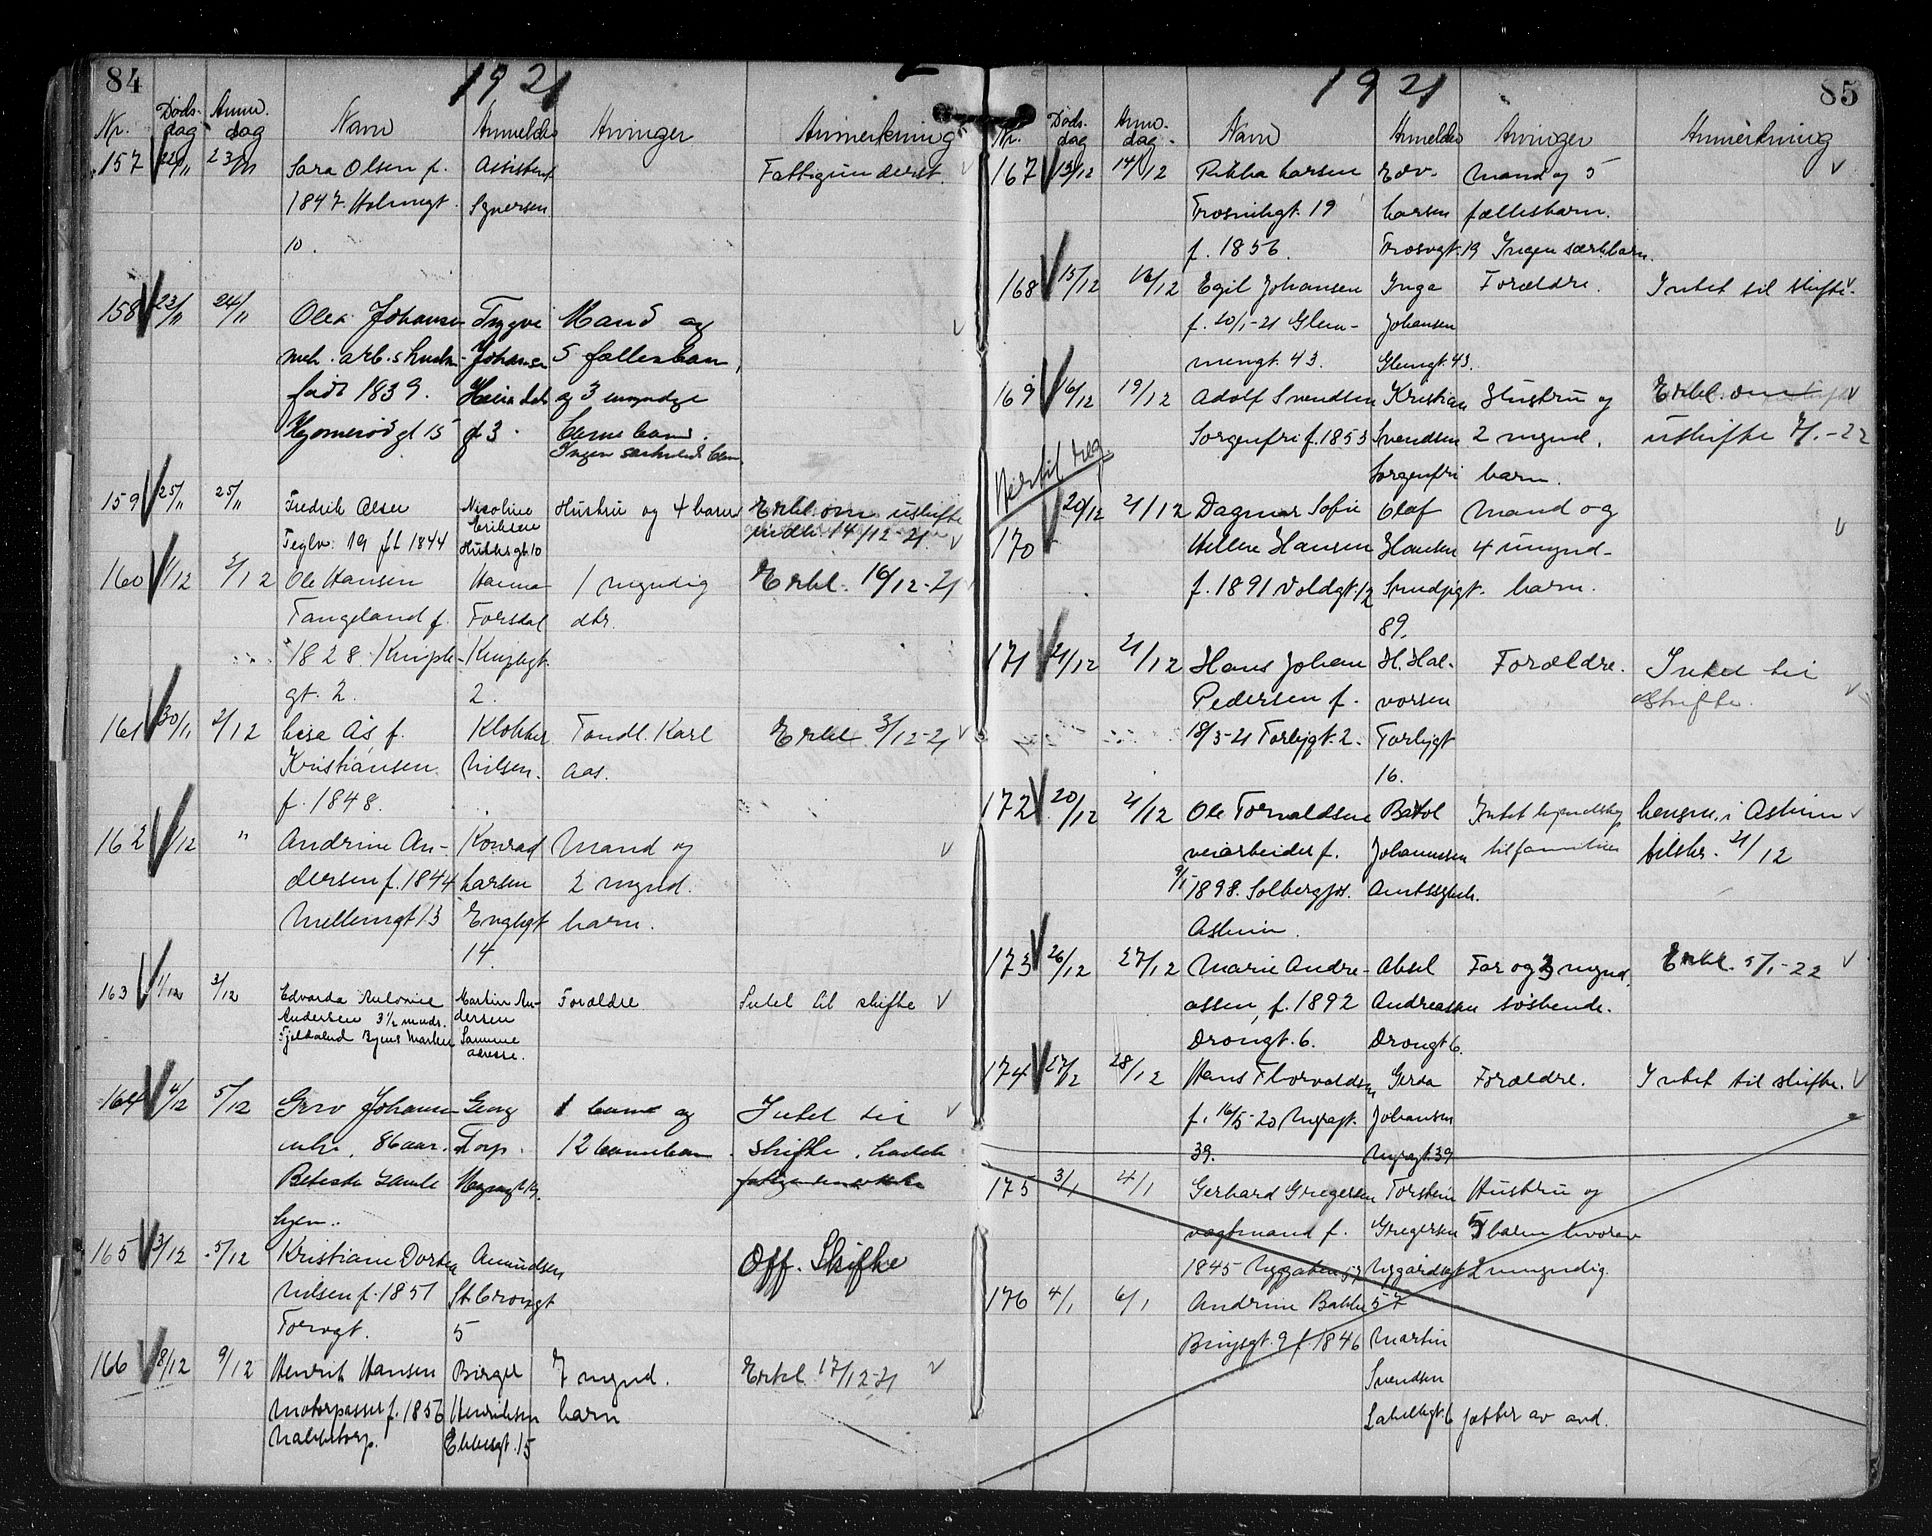 84
1921
Nr. Døds-dag Anm.dag Navn Anmelder Arvinger Anmerkning
157 22/11 23/11 Sara Olsen f. Assistent Fattigunderst.
1847 Holmegt. Syversen
10.
158 23/11 24/11 Johansen Trygve Mand og
mek. arb.s Johansen 5 fællesbarn,
født 1839. og 3 umyndige
gt 15 gt 3. barnebarn.
Ingen
159 25/11 25/11 Fredrik Olsen Nicoline Hustru og 4 barn Erkl. om uskifte
Eriksen
Teglv. 19 ft 1844 gt. 10 14/12-21.
160 1/12 2/12 Ole Hansen Hanna 1 myndig Erkl. 16/12-21
Tangeland f. Torsdal dtr.
1828. Kniple- Kniplegt.
gt. 2. 2.
161 30/11 2/12 Ås f. Klokker Tandl. Karl Erkl. 3/12-21
Kristiansen Nilsen. Aas.
f. 1848.
162 1/12 " Andrine An- Konrad Mand og
dersen f. 1844 Larsen 2 mynd.
Mellemgt 13 Engligt barn.
14.
163 1/12 3/12 Edvarda Antonie Martin An- Forældre Intet til skifte
Andersen 3 1/2 mnds. dersen
Byens Marker Samme
adresse.
164 4/12 5/12 Johansen Georg 1 barn og Intet til
enke, 86 aar. Torp. 12 barnebarn skifte, hadde
Gamle
hjem.
165 3/12 5/12 Kristiane Dortea Amundsen Off. Skifte
Nilsen f. 1851 St. Crossgt
Torvgt. 5
166 8/12 9/12 Henrik Hansen Birger 7 mynd. Erkl. 17/12-21
Motorpasser f. 1856 Henriksen barn
gt. 15
85
1921
Nr. Døds-dag Anm.dag Navn Anmelder Arvinger Anmerkning
167 13/12 14/12 Rikka Larsen Edv. Mand og 5
Trosvikgt. 19 Larsen fællesbarn.
f. 1856. Trosvgt. 19 Ingen særkbarn.
168 15/12 16/12 Egil Johansen Inga Forældre. Intet til skifte.
f. 20/1-21 Glem- Johansen
mengt. 43. Glemgt. 43.
169 16/12 19/12 Adolf Svendsen Kristian Hustru og Erkl. om
Sorgenfri f. 1853 Svendsen 2 mynd. uskifte 7/1-22
Sorgenfri barn.
20/12 21/12 Dagmar Sofie Olaf Mand og
170 Hellene Hansen Hansen 4 umynd-
f. 1891 Voldgt. 12 Smedjegt. barn.
89.
171 21/12 21/12 Hans Johan H. Hal- Forældre. Intet til
Pedersen f. vorsen skifte.
18/3-21 Farlegt. 2. Farlegt
16.
172 20/12 21/12 Ole Torvaldsen Intet kjendskap i Askim
veiarbeider f. Johannesen til familien tilskr. 21/12
9/1 1898. Solbergfos. Amtssykeh.
Askim.
173 26/12 27/12 Marie Andre- Aksel Far og 3 mynd. Erkl. 5/1-22
assen, f. 1892 Andreassen søskende.
Drongt. 6. Drongt 6.
174 27/12 28/12 Hans Thorvaldsen Gerda Forældre. Intet til skifte.
f. 16/5-20 Nygagt. Johansen
39. Nygagt. 39
175 3/1 4/1 Gerhard Gregersen Torstein Hustru og
vagtmand f. Gregersen 5 barn hvorav
1845 Nygaten 57 2 umyndig.
176 4/1 6/1 Andrine Bakke 57
gt. 9 f. 1846 Martin
Svendsen
gt. 6 fætter av avd.